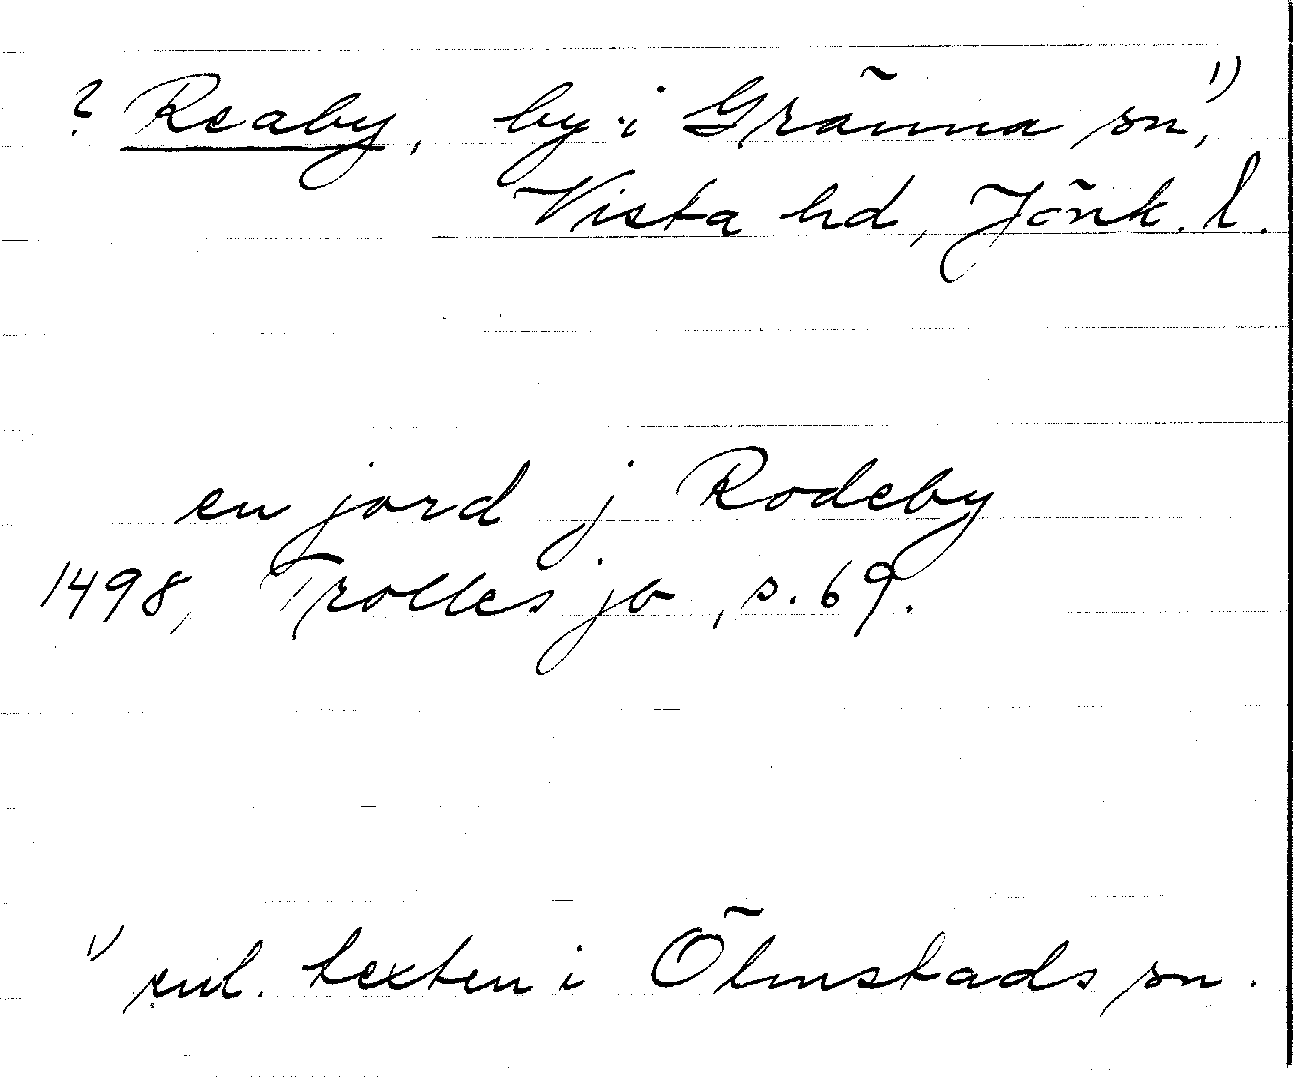 ? Reaby, by i Gränna sn,¹)
Vista hd, Jönk. l.
en jord j Rodeby
1498, Trolles jb, s. 69.
¹) enl. texten i Ölmstads sn.